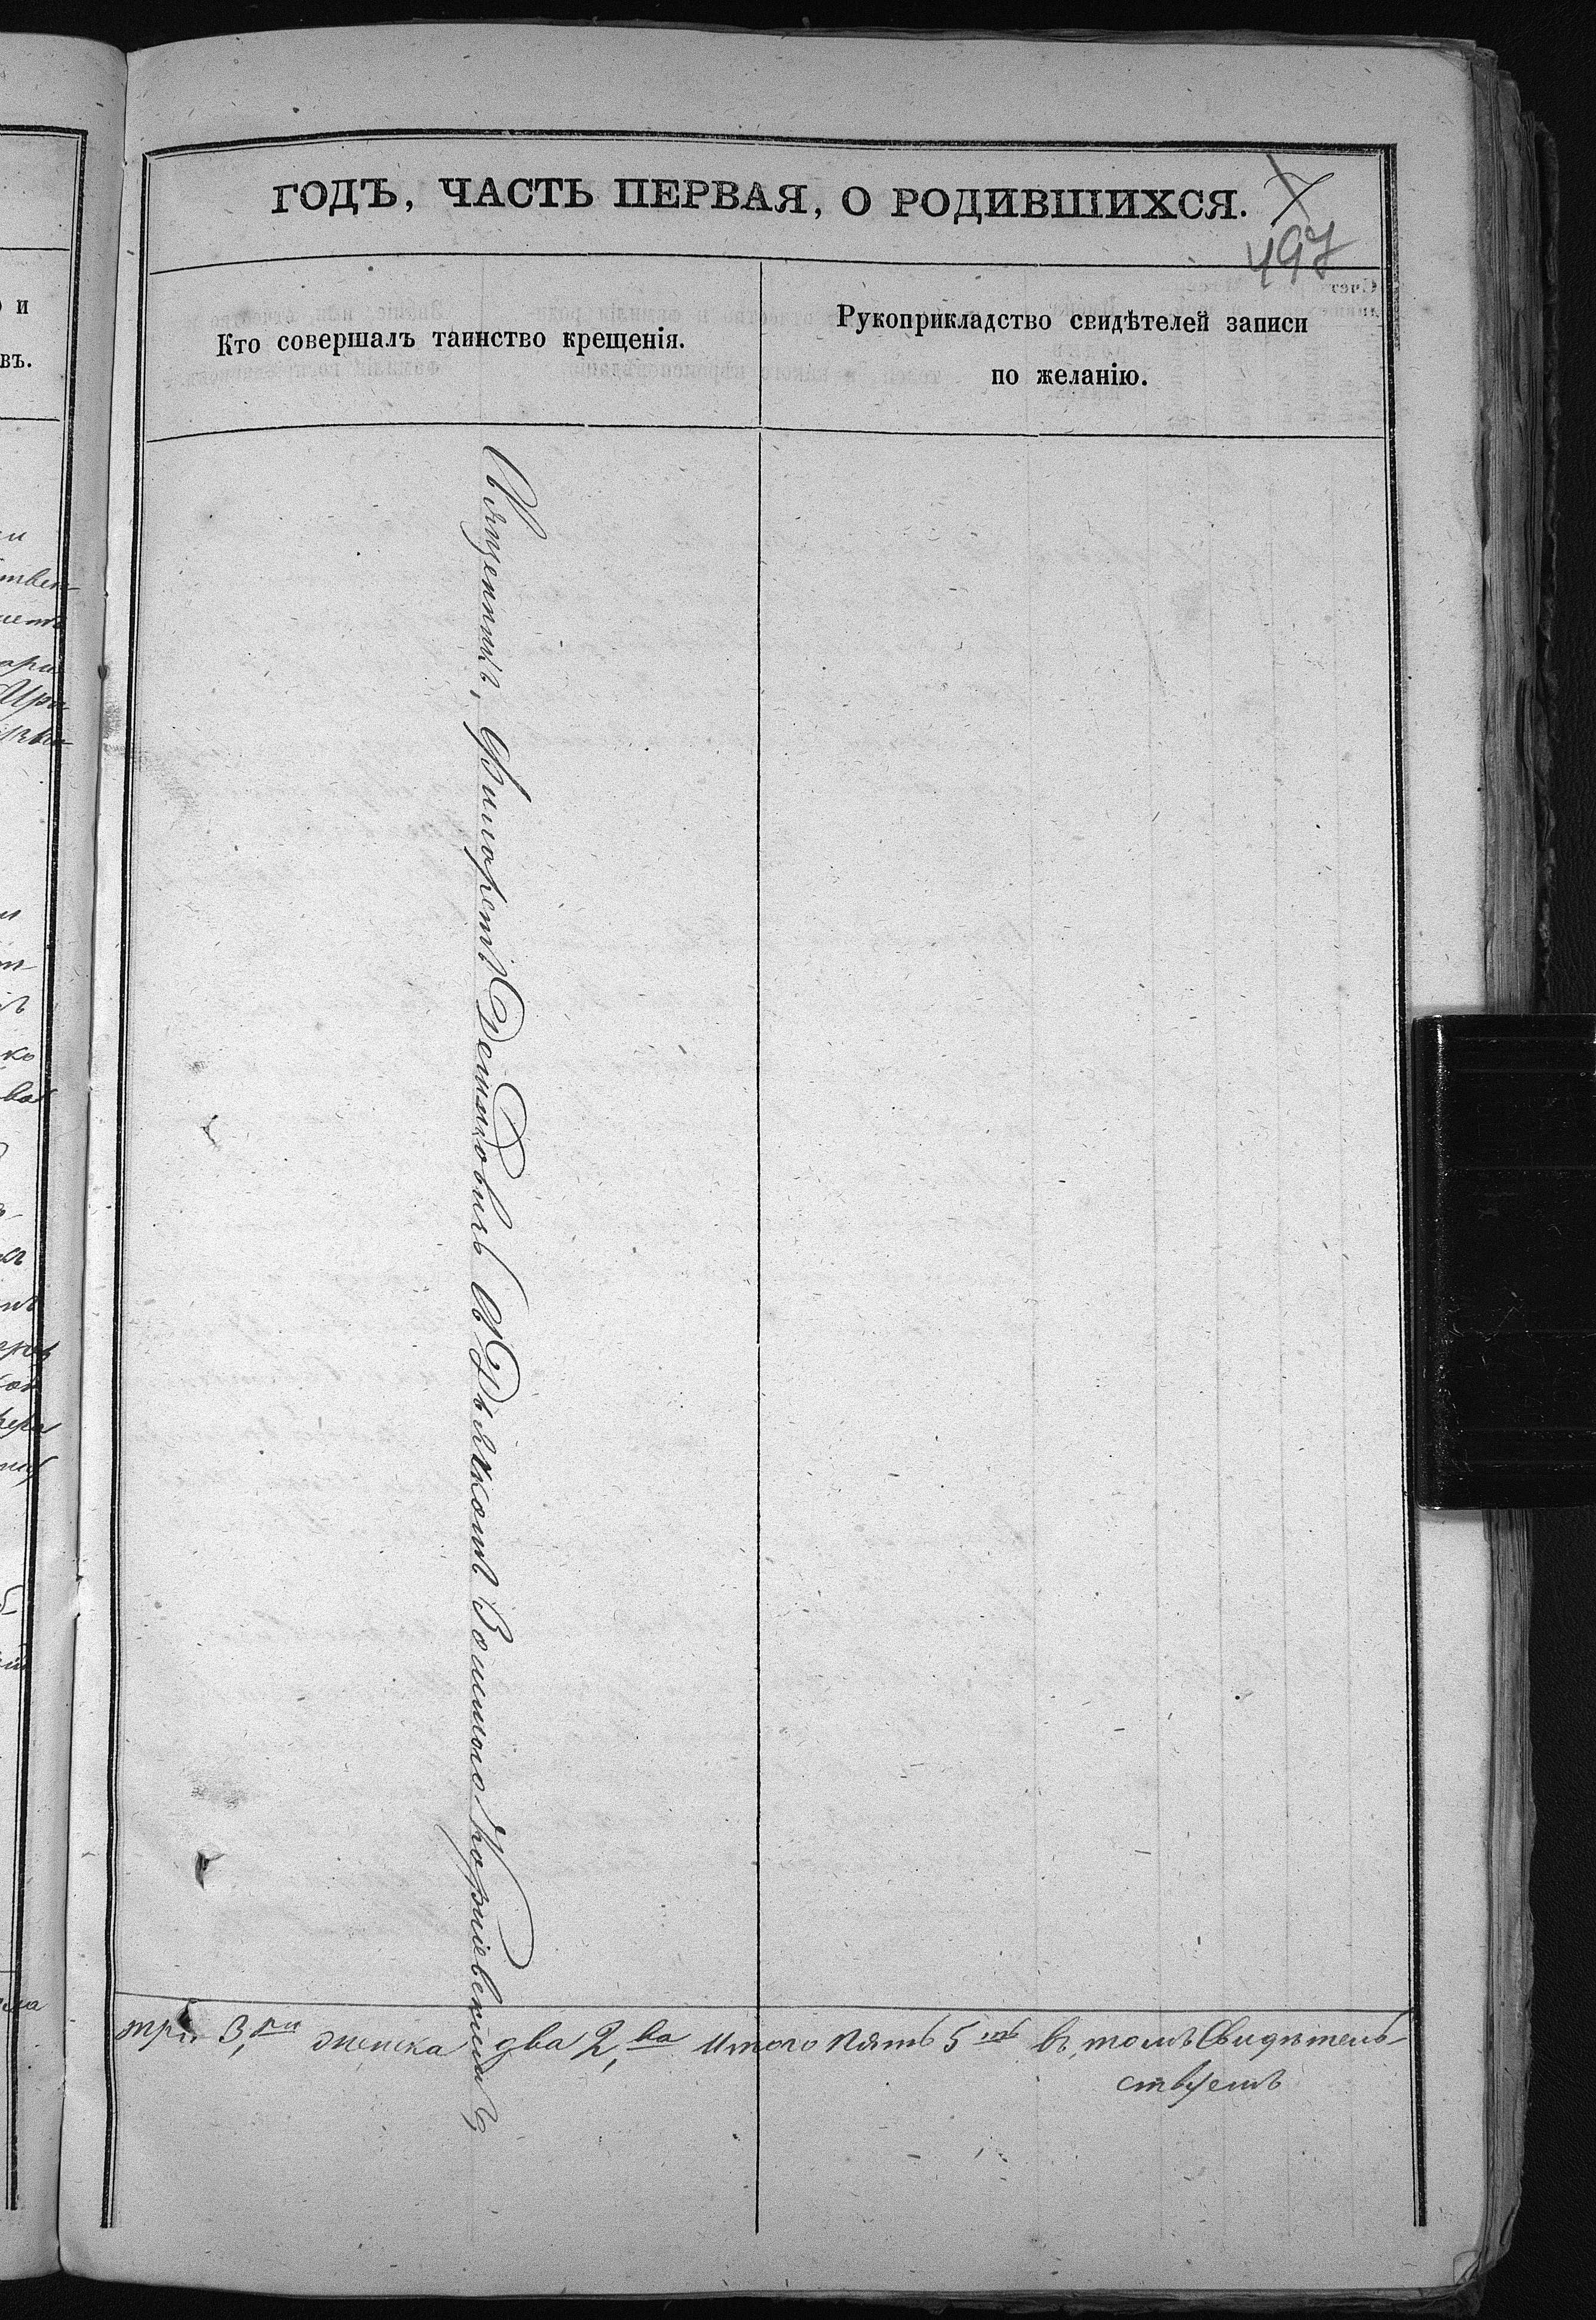 ГОДЪ, ЧАСТЬ ПЕРВАЯ, О РОДИВШИХСЯ.
7
497
Кто совершалъ таинство крещенія.
Рукоприкладство свидѣтелей записи
по желанію.
Священникъ, Филоретъ Демковичъ Съ Дьякомъ Корніевскимъ
три 3, ри женска два 2, ва итого пять 5 ть въ томъ Свидѣтель-
ствуемъ